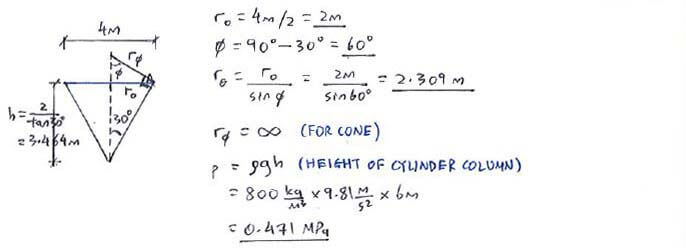 4M
rϕ
ϕ
r₀
h = 2/tan30°
= 3.464M
30°
r₀ = 4M/2 = 2M
ϕ = 90° - 30° = 60°
rθ = r₀/sinϕ = 2M/sin60° = 2.309 M
rϕ = ∞ (FOR CONE)
P = ρgh (HEIGHT OF CYLINDER COLUMN)
= 800 kg/M³ × 9.81 M/s² × 6M
= 0.471 MPa